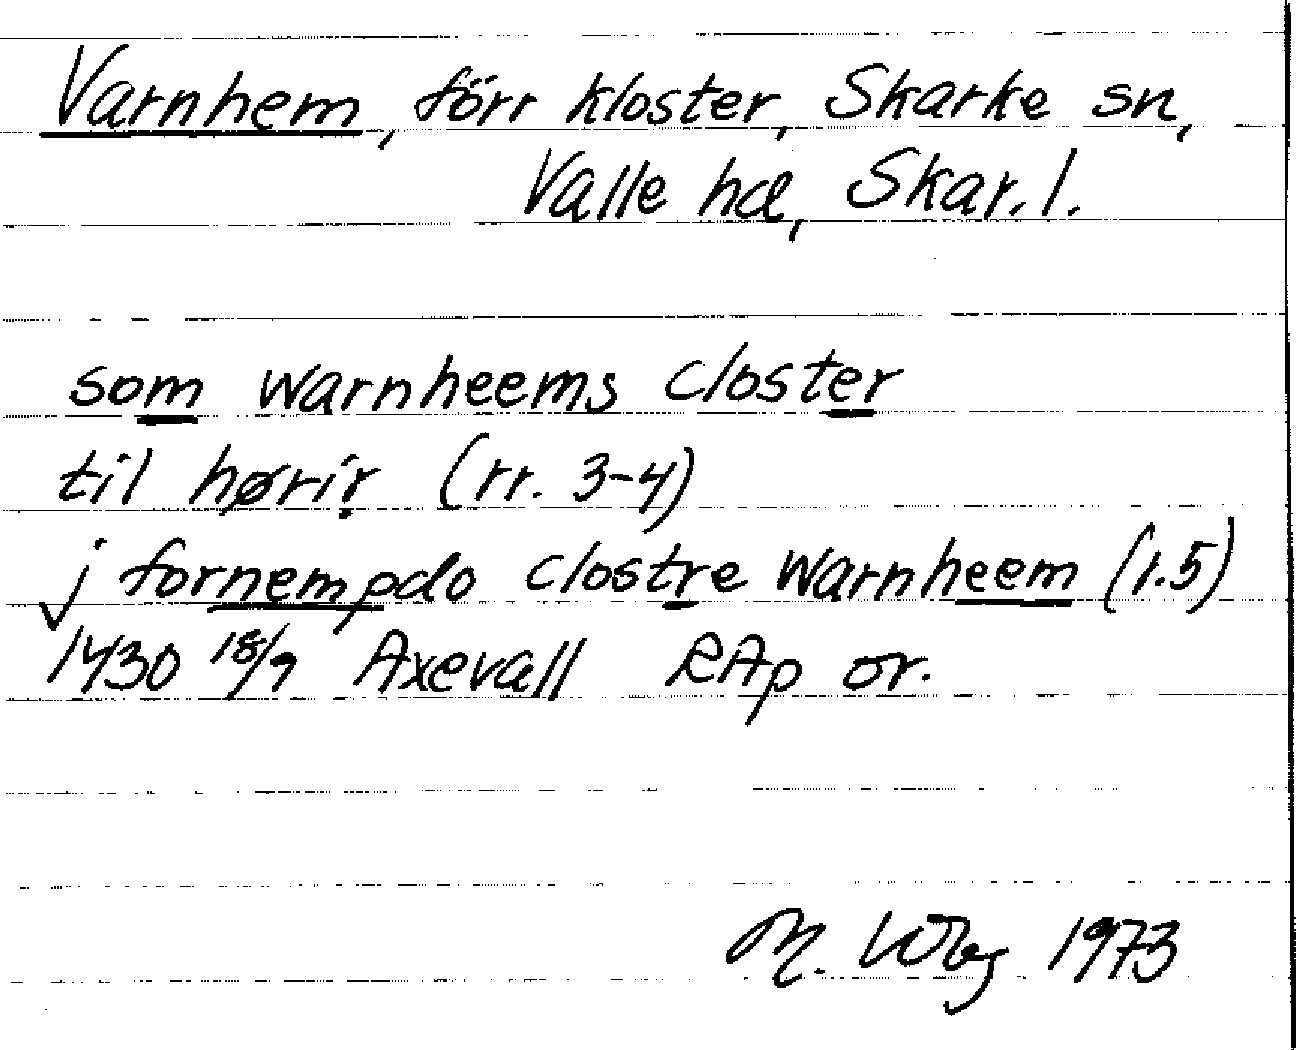 Varnhem, förr kloster, Skarke sn,
Valle hd, Skar. l.
som warnheems closter
til hørir (rr. 3-4)
j fornempdo clostre warnheem (r.5)
1430 18/9 Axevall RAp or.
M. Wbg 1973